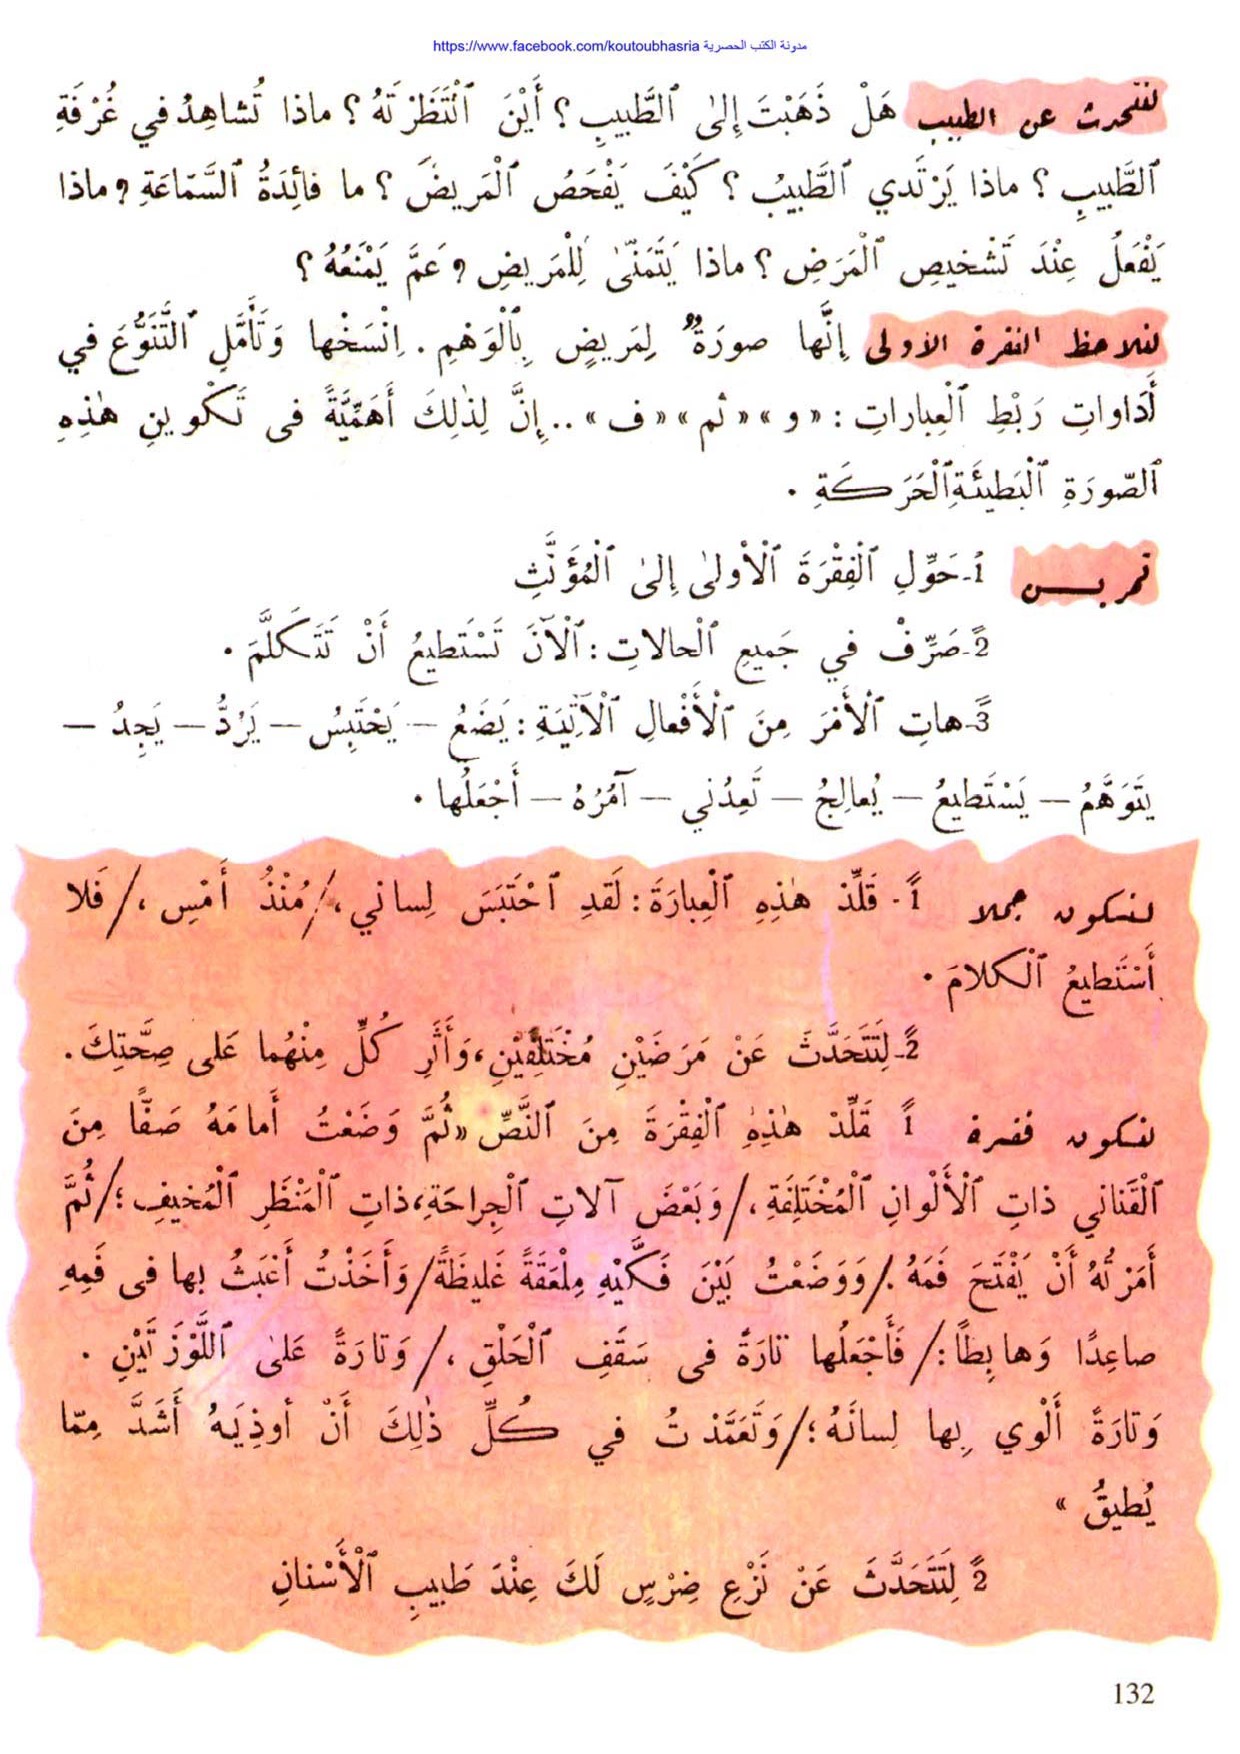 مدونة الكتب الحصرية https://www.facebook.com/koutoubhasria
لنتحدث عن الطبيب هَلْ ذَهَبْتَ إِلىٰ ٱلطَّبيبِ؟ أَيْنَ ٱنْتَظَرْتَهُ؟ ماذا تُشاهِدُ في غُرْفَةِ
ٱلطَّبيبِ؟ ماذا يَرْتَدي ٱلطَّبيبُ؟ كَيْفَ يَفْحَصُ ٱلْمَريضَ؟ ما فائِدَةُ ٱلسَّمّاعَةِ؟ ماذا
يَفْعَلُ عِنْدَ تَشْخيصِ ٱلْمَرَضِ؟ ماذا يَتَمَنّىٰ لِلْمَريضِ؟ عَمَّ يَمْنَعُهُ؟
لنلاحظ الفقرة الاولى إِنَّها صورَةٌ لِمَريضٍ بِٱلْوَهْمِ. اِنْسَخْها وَتَأَمَّلِ ٱلتَّنَوُّعَ في
أَدَاواتِ رَبْطِ ٱلْعِباراتِ: «و» «ثم» «ف».. إِنَّ لِذٰلِكَ أَهَمِّيَّةً فى تَكْوينِ هٰذِهِ
ٱلصّورَةِ ٱلْبَطيئَةِ ٱلْحَرَكَةِ.
تمريــن 1ً-حَوِّلِ ٱلْفِقْرَةَ ٱلْأولىٰ إِلىٰ ٱلْمُؤَنَّثِ
2ً-صَرِّفْ في جَميعِ ٱلْحالاتِ: ٱلْآنَ تَسْتَطيعُ أَنْ تَتَكَلَّمَ.
3ً-هاتِ ٱلْأَمْرَ مِنَ ٱلْأَفْعالِ ٱلْآتِيَةِ: يَضَعُ — يَحْتَبِسُ — يَرُدُّ — يَجِدُ —
يَتَوَهَّمُ — يَسْتَطيعُ — يُعالِجُ — تَعِدُني — آمُرُهُ — أَجْعَلُها.
لنكون جملا 1ً- قَلِّدْ هٰذِهِ ٱلْعِبارَةَ: لَقَدِ ٱحْتَبَسَ لِساني،/مُنْذُ أَمْسِ،/فَلا
أَسْتَطيعُ ٱلْكَلامَ.
2ً-لِتَتَحَدَّثَ عَنْ مَرَضَيْنِ مُخْتَلِفَيْنِ،وَأَثَرِ كُلِّ مِنْهُما عَلى صِحَّتِكَ.
لنكون فقرة 1ً قَلِّدْ هٰذِهِ ٱلْفِقْرَةَ مِنَ ٱلنَّصِّ «ثُمَّ وَضَعْتُ أَمامَهُ صَفًّا مِنَ
ٱلْقَناني ذاتِ ٱلْأَلْوانِ ٱلْمُخْتَلِفَةِ،/وَبَعْضَ آلاتِ ٱلْجِراحَةِ،ذاتِ ٱلْمَنْظَرِ ٱلْمُخيفِ؛/ثُمَّ
أَمَرْتُهُ أَنْ يَفْتَحَ فَمَهُ./وَوَضَعْتُ بَيْنَ فَكَّيْهِ مِلْعَقَةً غَليظَةً/وَأَخَذْتُ أَعْبَثُ بها فى فَمِهِ
صاعِدًا وَهابِطًا:/فَأَجْعَلُها تارَةً فى سَقَفِ ٱلْحَلْقِ،/وَتارَةً عَلىٰ ٱللَّوْزَتَيْنِ.
وَتارَةً أَلْوي بِها لِسانَهُ؛/وَتَعَمَّدْتُ في كُلِّ ذٰلِكَ أَنْ أوذِيَهُ أَشَدَّ مِمّا
يُطيقُ»
2ً لِتَتَحَدَّثَ عَنْ نَزْعِ ضِرْسٍ لَكَ عِنْدَ طَبيبِ ٱلْأَسْنانِ
132